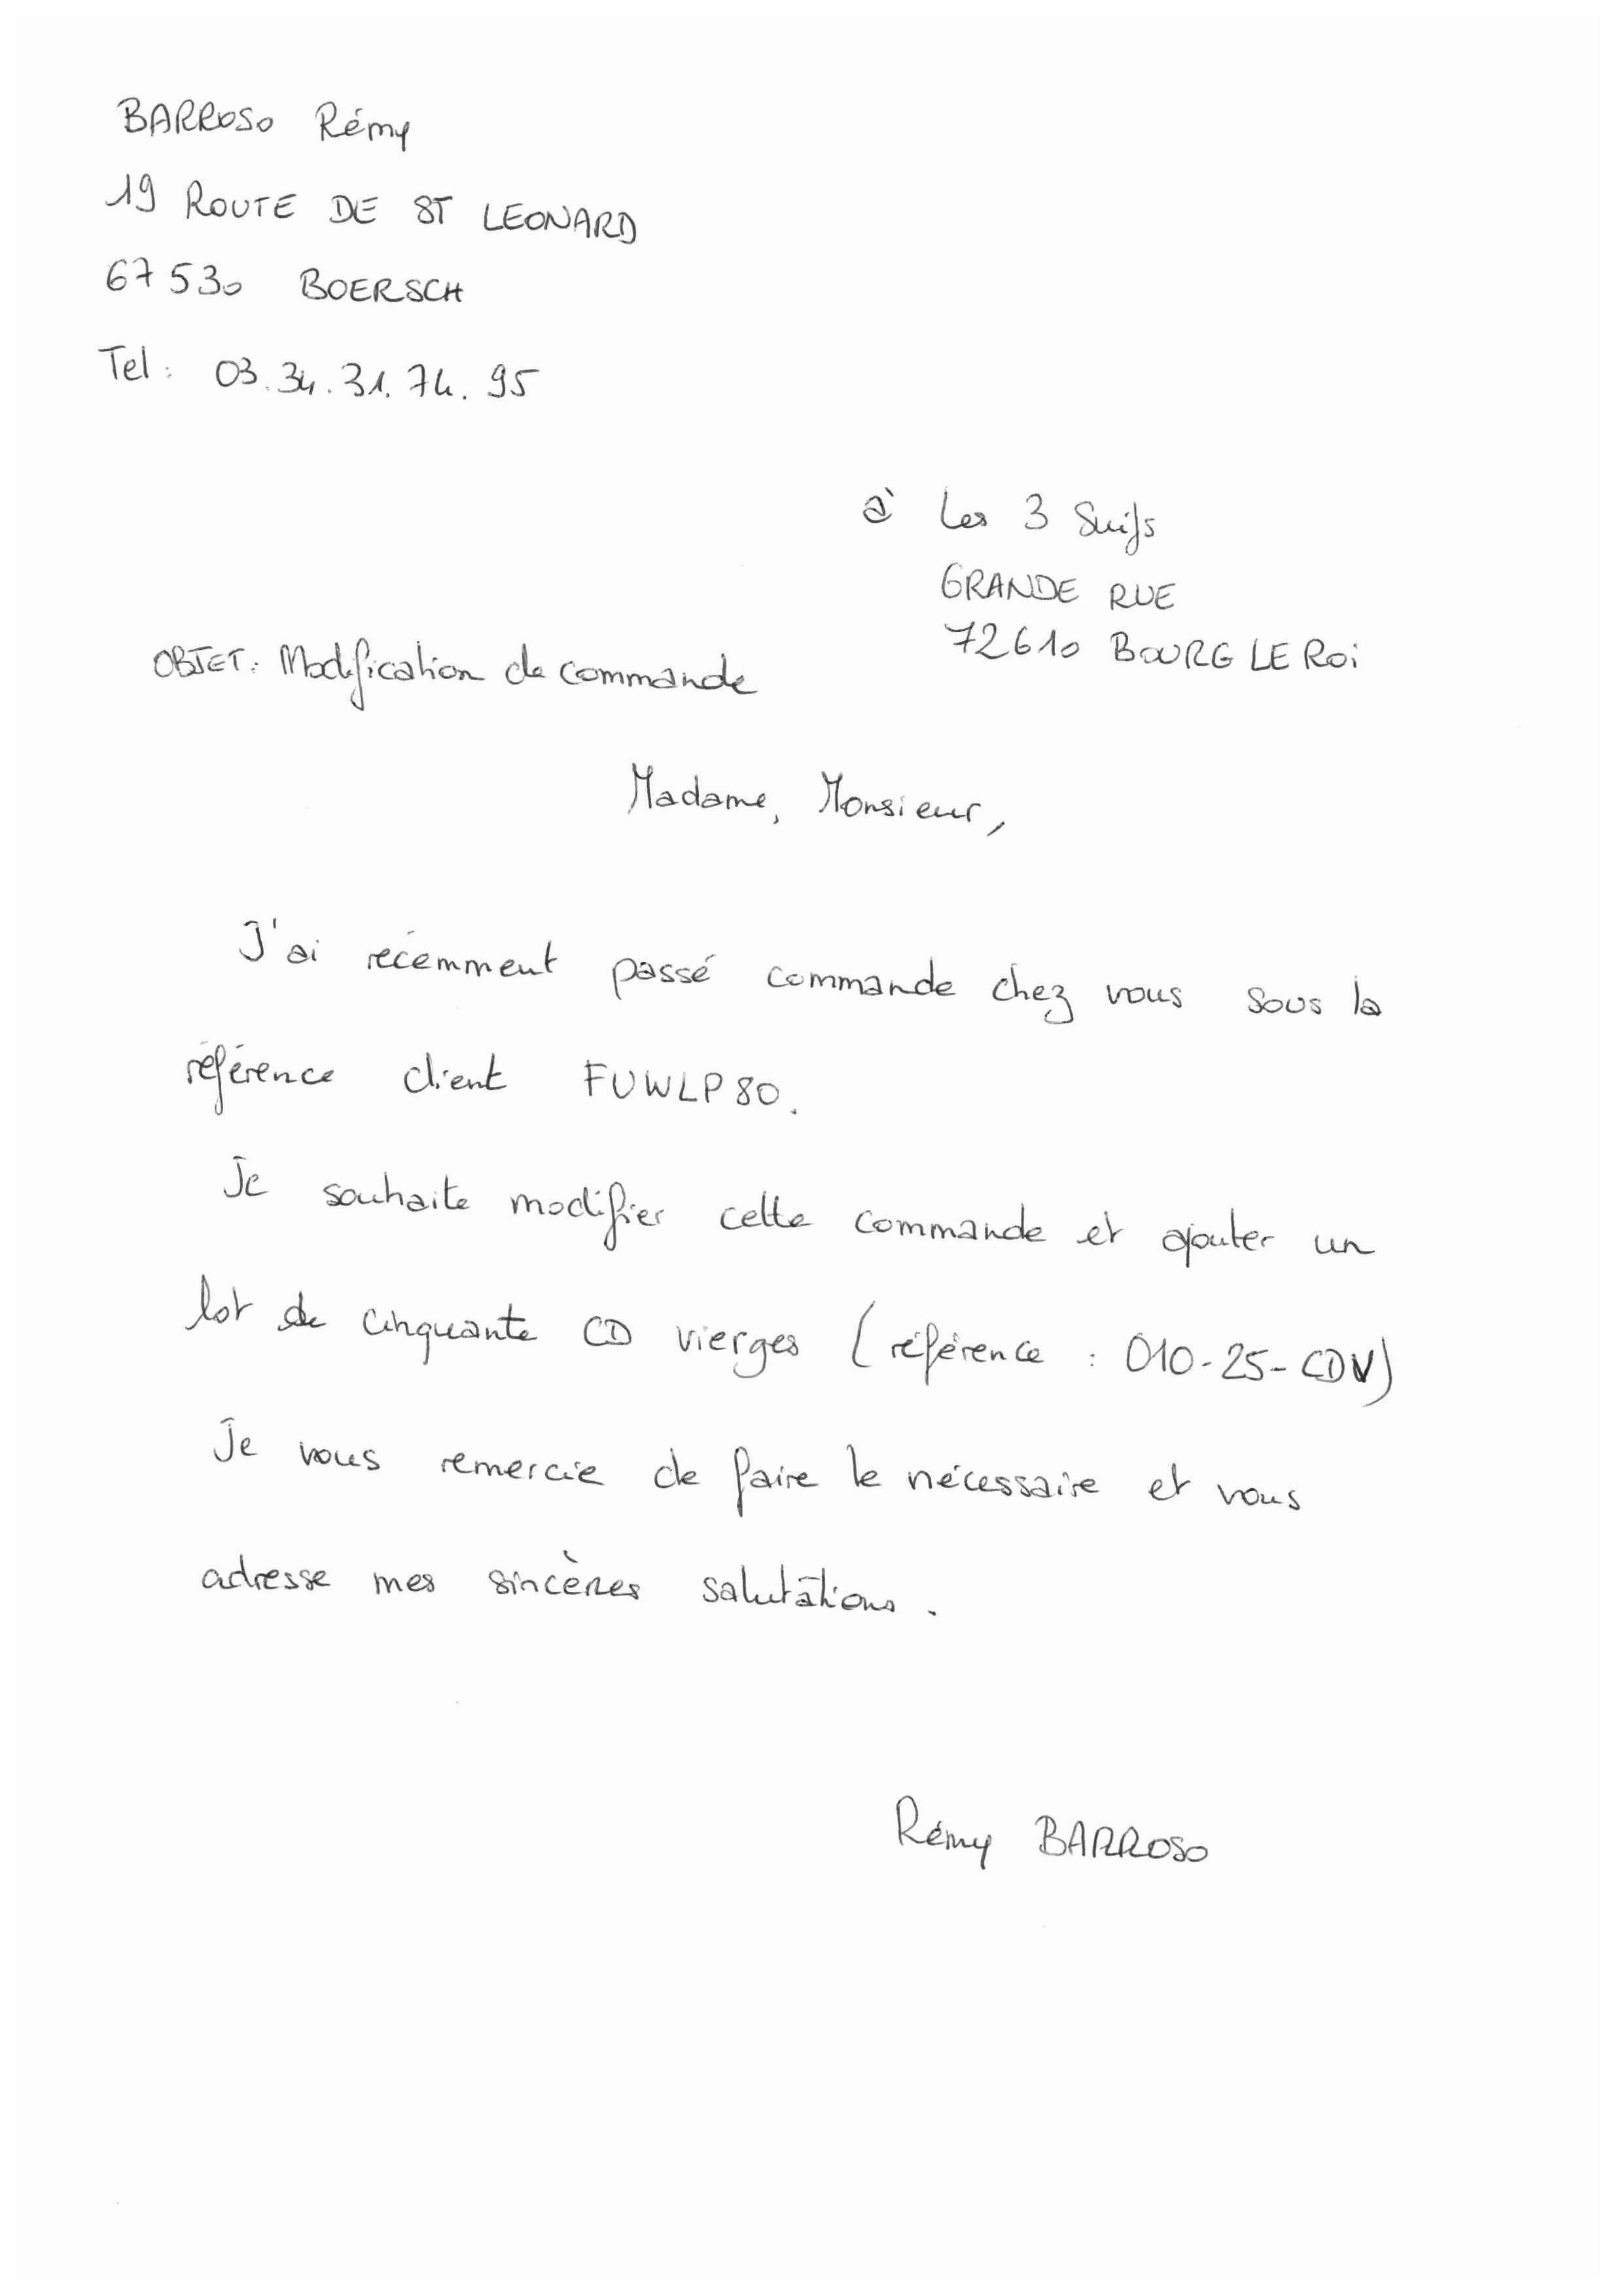 BARROSO Rémy
19 ROUTE DE ST LEONARD
67530 BOERSCH
Tel : 03.34.31.74.95
à Les 3 Suifs
GRANDE RUE
72610 BOURG LE ROi
OBJET : Modification de commande
Madame, Monsieur,
J'ai récemment passé commande chez vous sous la
référence client FUWLP80.
Je souhaite modifier cette commande et ajouter un
lot de cinquante CD vierges (référence : 010-25-CDV)
Je vous remercie de faire le nécessaire et vous
adresse mes sincères salutations.
Rémy BARROSO